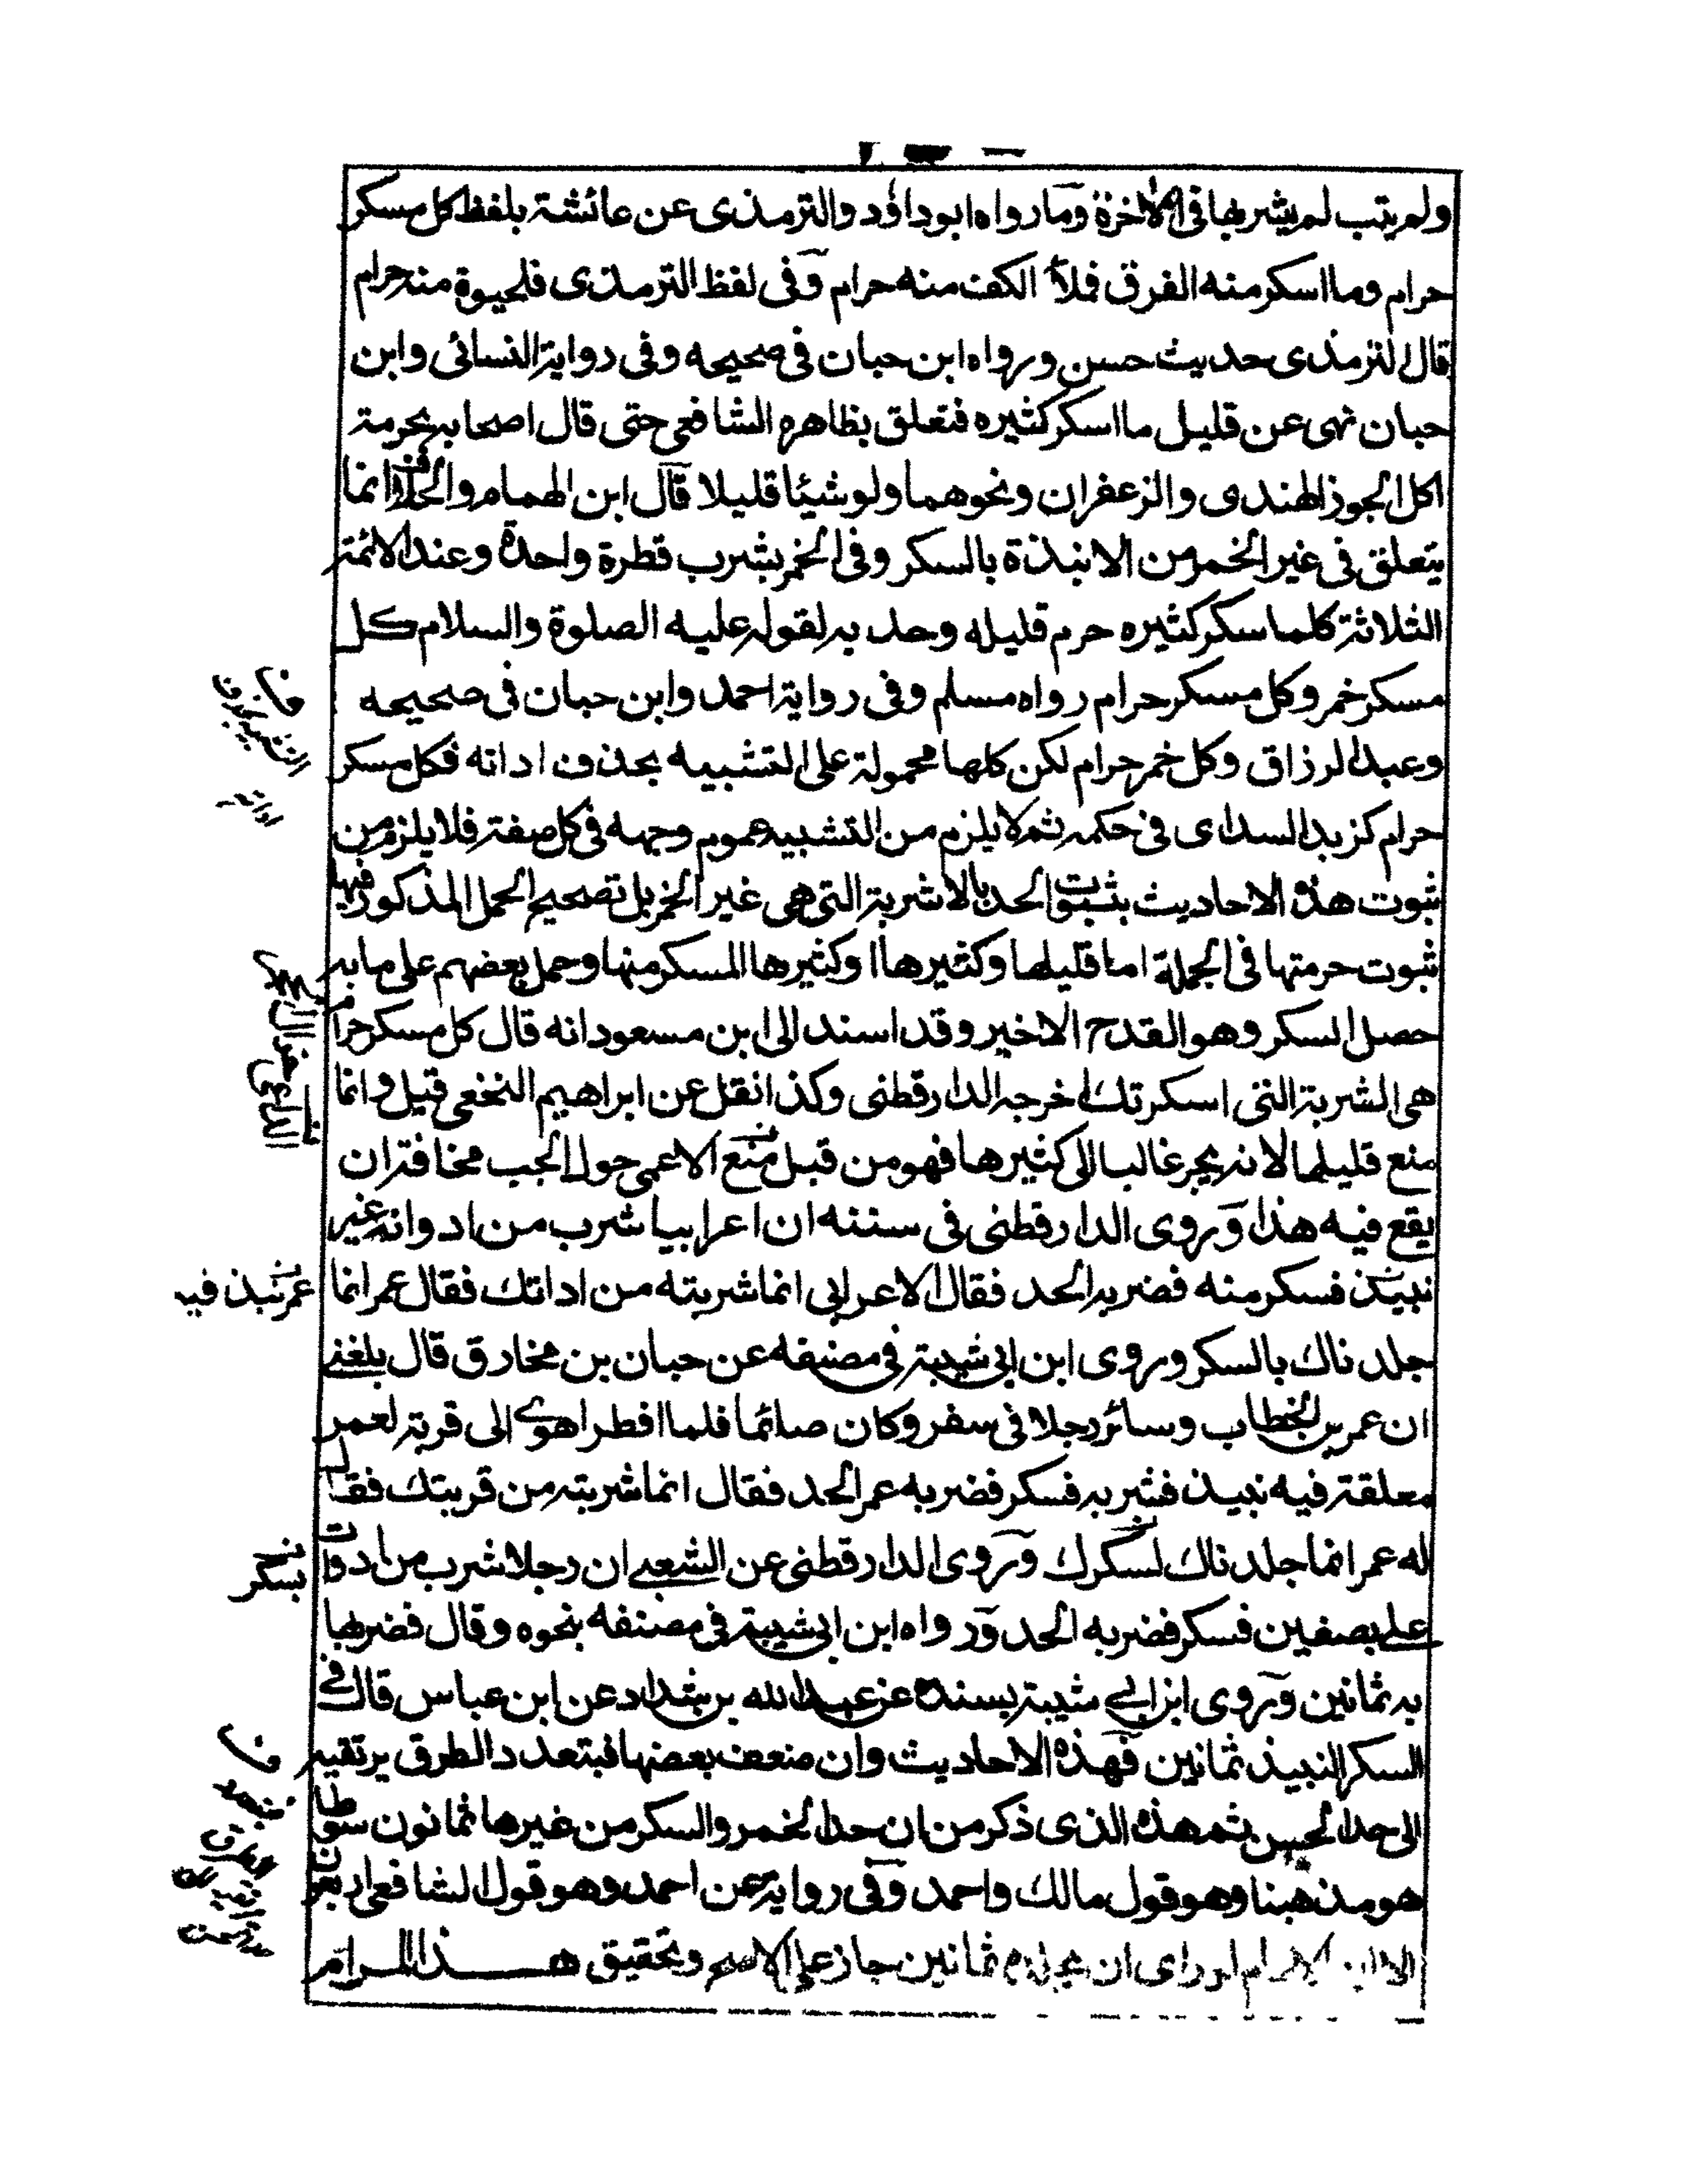 ولم يتب لم يشربها فى الاخرة وما رواه ابوداؤد والترمذى عن عائشة بلفظ كل مسكر
حرام وما اسكر منه الفرق فملأ الكف منه حرام وفى لفظ الترمذى فلحسوة منه حرام
قال الترمذى حديث حسن ورواه ابن حبان فى صحيحه وفى رواية النسائى وابن
حبان نهى عن قليل ما اسكر كثيره فتعلق بظاهره الشافعى حتى قال اصحابه بحرمة
اكل الجوز الهندى والزعفران ونحوهما ولو شيئا قليلا قال ابن الهمام والحد انما
يتعلق فى غير الخمر من الانبذة بالسكر وفى الخمر بشرب قطرة واحدة وعند الائمة
الثلاثة كلما سكر كثيره حرم قليله وحد به لقوله عليه الصلوة والسلام كل
مسكر خمر وكل مسكر حرام رواه مسلم وفى رواية احمد وابن حبان فى صحيحه
وعبد الرزاق وكل خمر حرام لكن كلها محمولة على التشبيه بحذف اداته فكل مسكر
حرام كزيد اسد اى فى حكمه ثم لا يلزم من التشبيه عموم وجهه فى كل صفة فلا يلزم من
ثبوت هذه الاحاديث ثبوت الحد بالاشربة التى هى غير الخمر بل تصحيح الحمل المذكور فيها
ثبوت حرمتها فى الجملة اما قليلها وكثيرها او كثيرها المسكر منها وحمل بعضهم على ما به
حصل السكر وهو القدح الاخير وقد اسند الى ابن مسعود انه قال كل مسكر حرام
هى الشربة التى اسكرتك اخرجه الدارقطنى وكذا نقل عن ابراهيم النخعى قيل وانما
منع قليلها لانه يجر غالبا الى كثيرها فهو من قبل منع الاعمى حول الجب مخافة ان
يقع فيه هذا وروى الدارقطنى فى سننه ان اعرابيا شرب من ادوانه غير
نبيذ فسكر منه فضربه الحد فقال الاعرابى انما شربته من اداتك فقال عمر انما
عمر نبيذ فيه
جلدناك بالسكر وروى ابن ابى شيبة فى مصنفه عن حبان بن مخارق قال بلغنى
ان عمر بن الخطاب وسائر رجلا فى سفر وكان صائما فلما افطر اهوى الى قربة لعمر
معلقة فيه نبيذ فشربه فسكر فضربه عمر الحد فقال انما شربته من قربتك فقال
له عمر انما جلدناك لسكرك وروى الدارقطنى عن الشعبى ان رجلا شرب من ادوات
بسكر
على بصفين فسكر فضربه الحد ورواه ابن ابى شيبة فى مصنفه بنحوه وقال فضربها
به ثمانين وروى ابن ابى شيبة بسنده عن عبد الله بن شداد عن ابن عباس قال فى
السكر النبيذ ثمانين فهذه الاحاديث وان ضعف بعضها فبتعدد الطرق يرتقيه
الى حد الحسن ثم هذه الذى ذكر من ان حد الخمر والسكر من غيرها ثمانون سوطا
هو مذهبنا وهو قول مالك واحمد وفى رواية عن احمد وهو قول الشافعى اربعون
الا ان الامام لو راى ان يجلده ثمانين جاز على الاسم وتحقيق هذا المرام